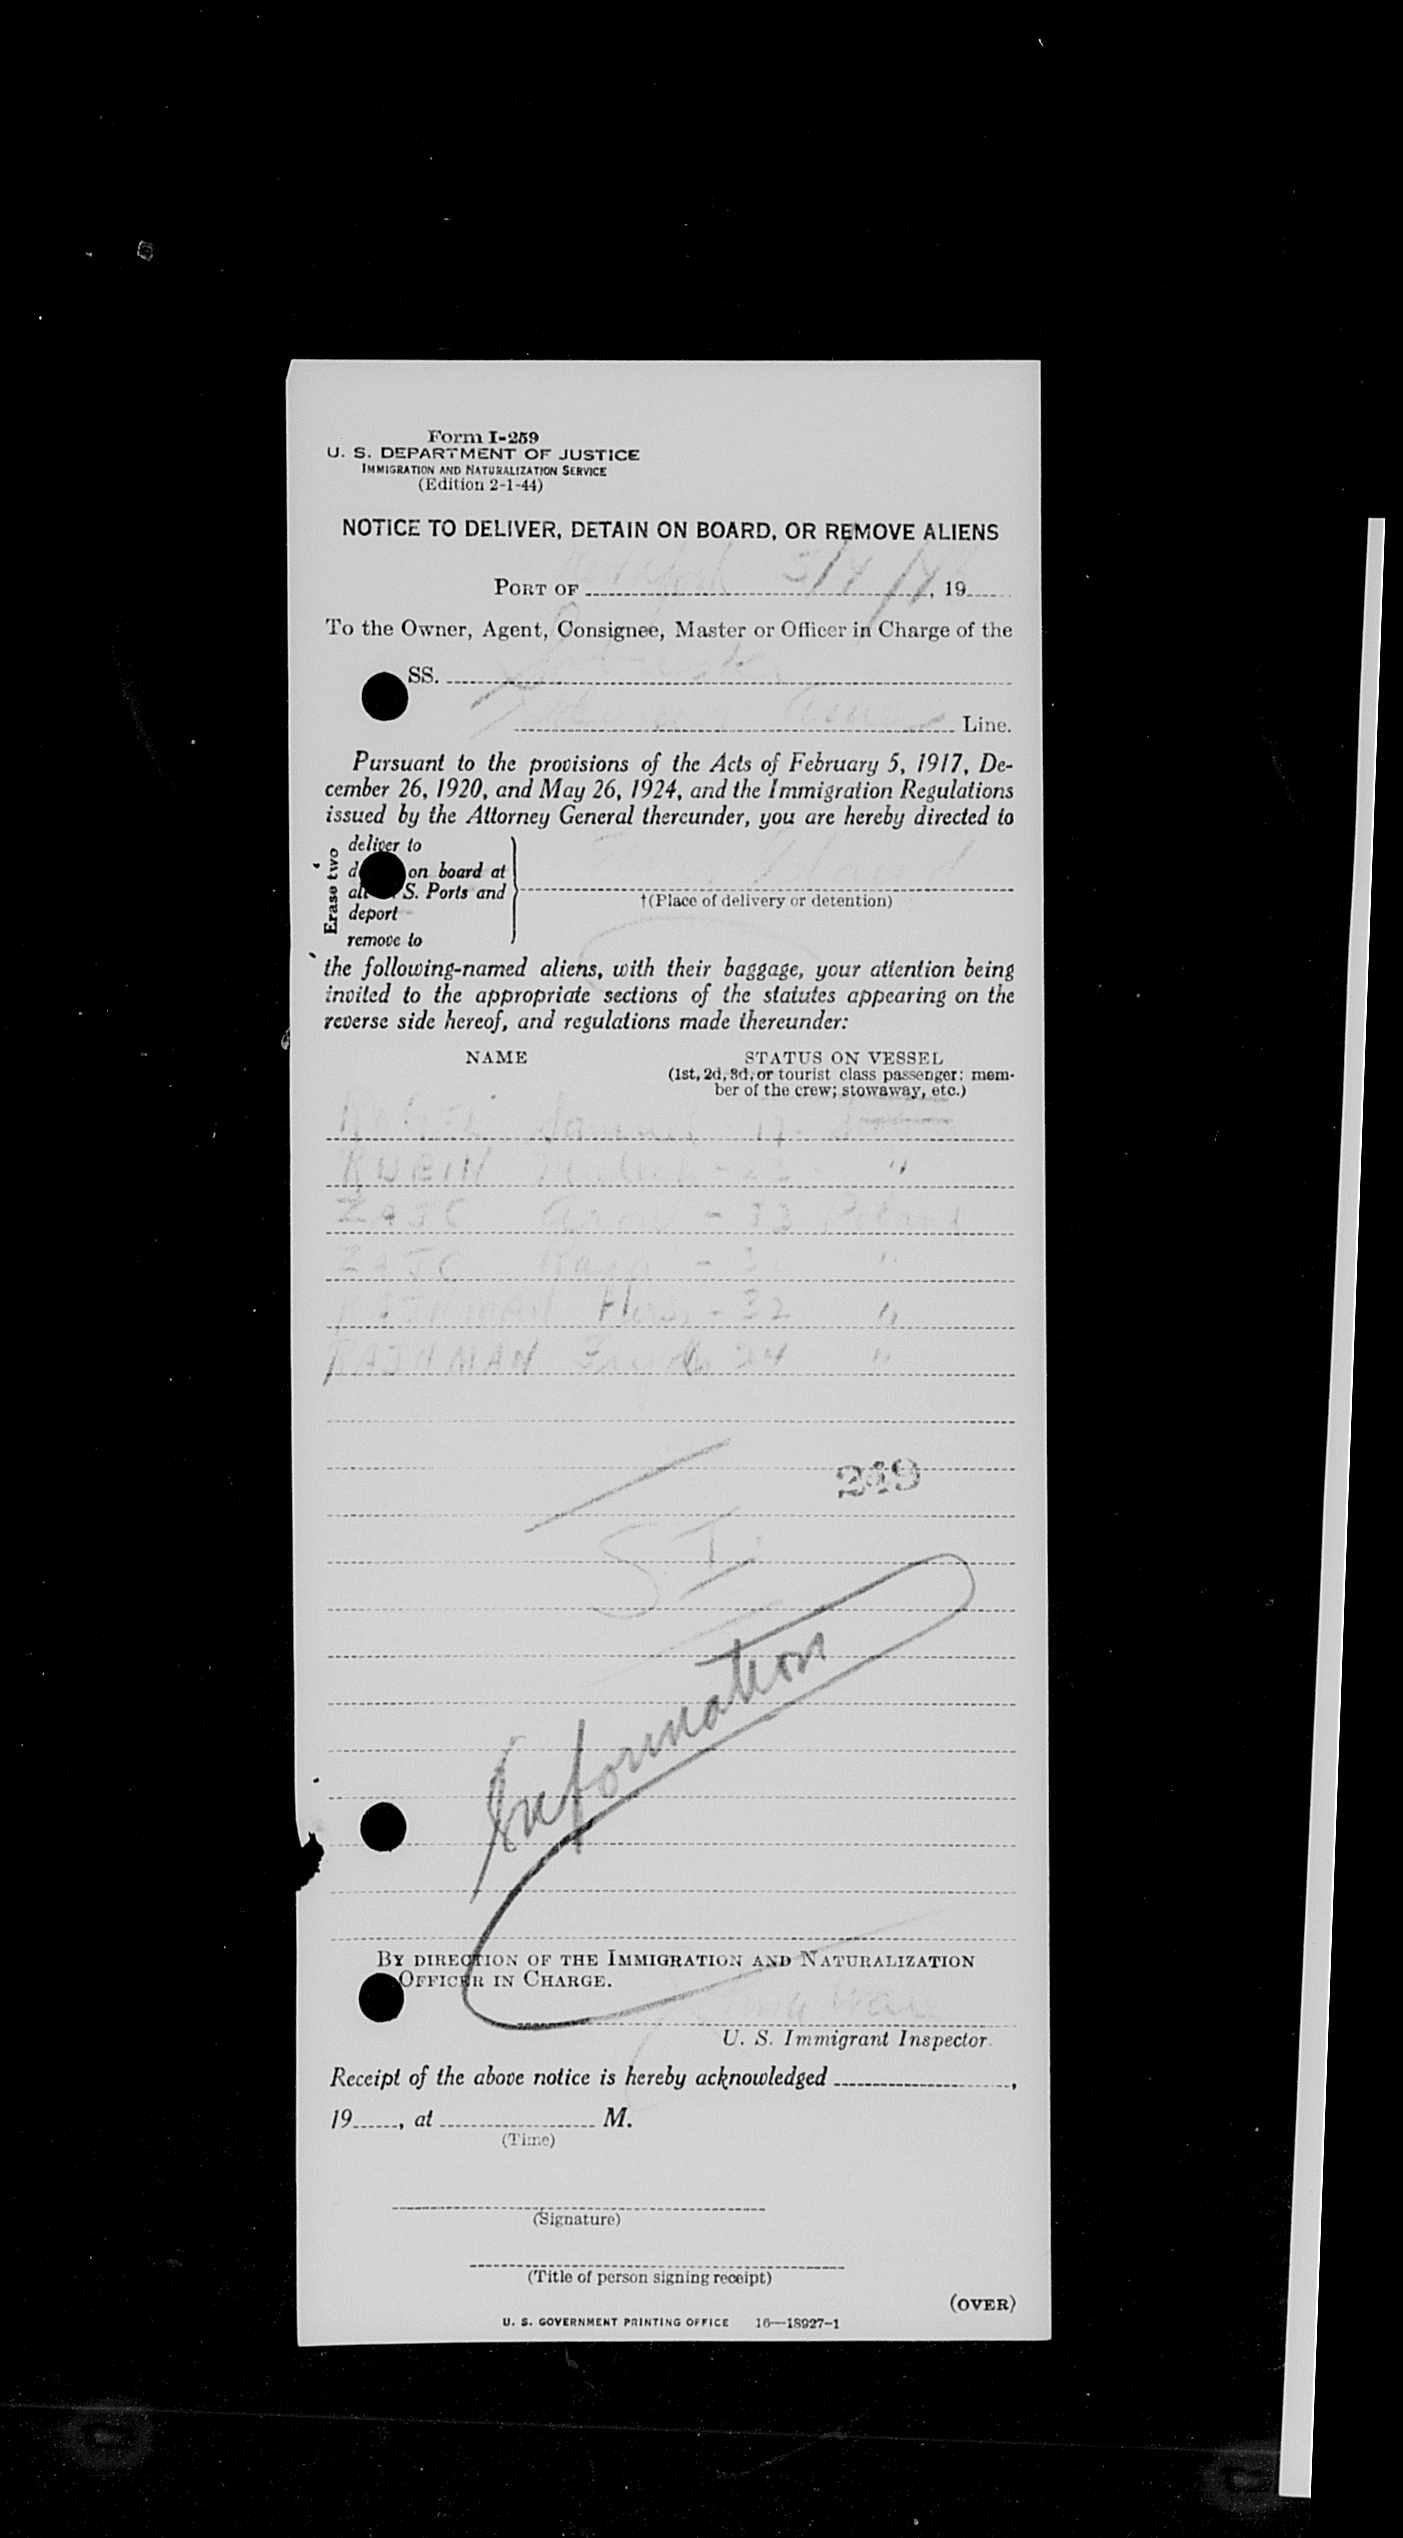 Form I-259
U. S. DEPARTMENT OF JUSTICE
IMMIGRATION AND NATURALIZATION SERVICE
(Edition 2-1-44)
NOTICE TO DELIVER, DETAIN ON BOARD, OR REMOVE ALIENS
PORT OF , 19
To the Owner, Agent, Consignee, Master or Officer in Charge of the
SS.
Line.
Pursuant to the provisions of the Acts of February 5, 1917, De-
cember 26, 1920, and May 26, 1924, and the Immigration Regulations
issued by the Attorney General thereunder, you are hereby directed to
Erase two
deliver to
on board at
S. Ports and
deport
remove to
Island
†(Place of delivery or detention)
the following-named aliens, with their baggage, your attention being
invited to the appropriate sections of the statutes appearing on the
reverse side hereof, and regulations made thereunder:
NAME STATUS ON VESSEL
(1st, 2d, 3d, or tourist class passenger; mem-
ber of the crew; stowaway, etc.)
RUBIN "
ZAJC - 33 Poland
ZAJC "
RAJHMAN - 32 "
RAJHMAN 24 "
249
S I
Information
BY DIRECTION OF THE IMMIGRATION AND NATURALIZATION
OFFICER IN CHARGE.
U. S. Immigrant Inspector.
Receipt of the above notice is hereby acknowledged ,
19 , at M.
(Time)
(Signature)
(Title of person signing receipt)
(OVER)
U. S. GOVERNMENT PRINTING OFFICE 16—18927-1